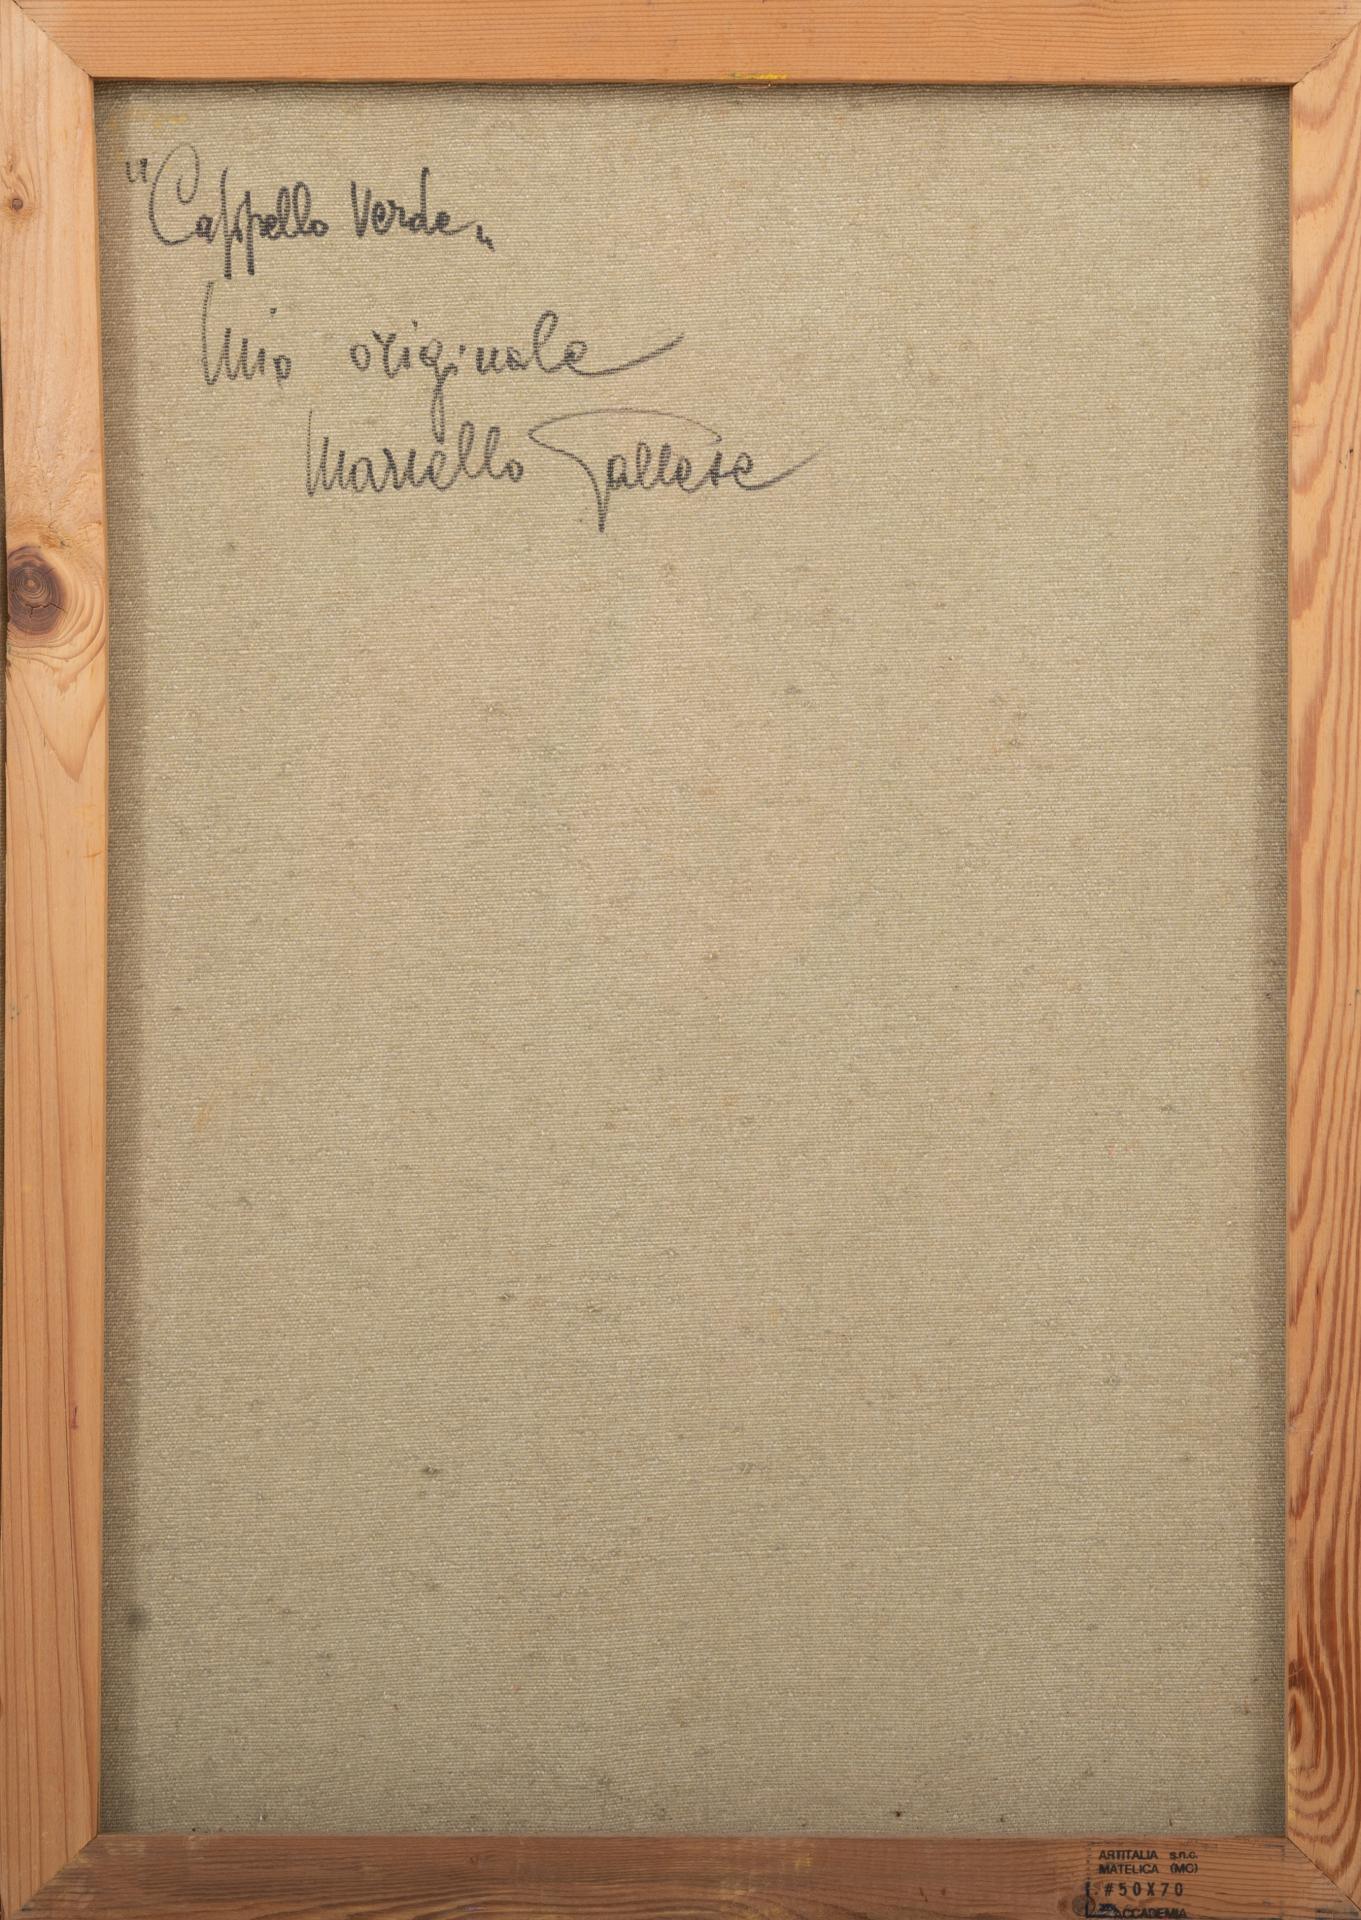 "Cappello Verde"
Mio originale
Marcello Gallese
ARTITALIA s.n.c.
MATELICA (MC)
#50X70
ACCADEMIA